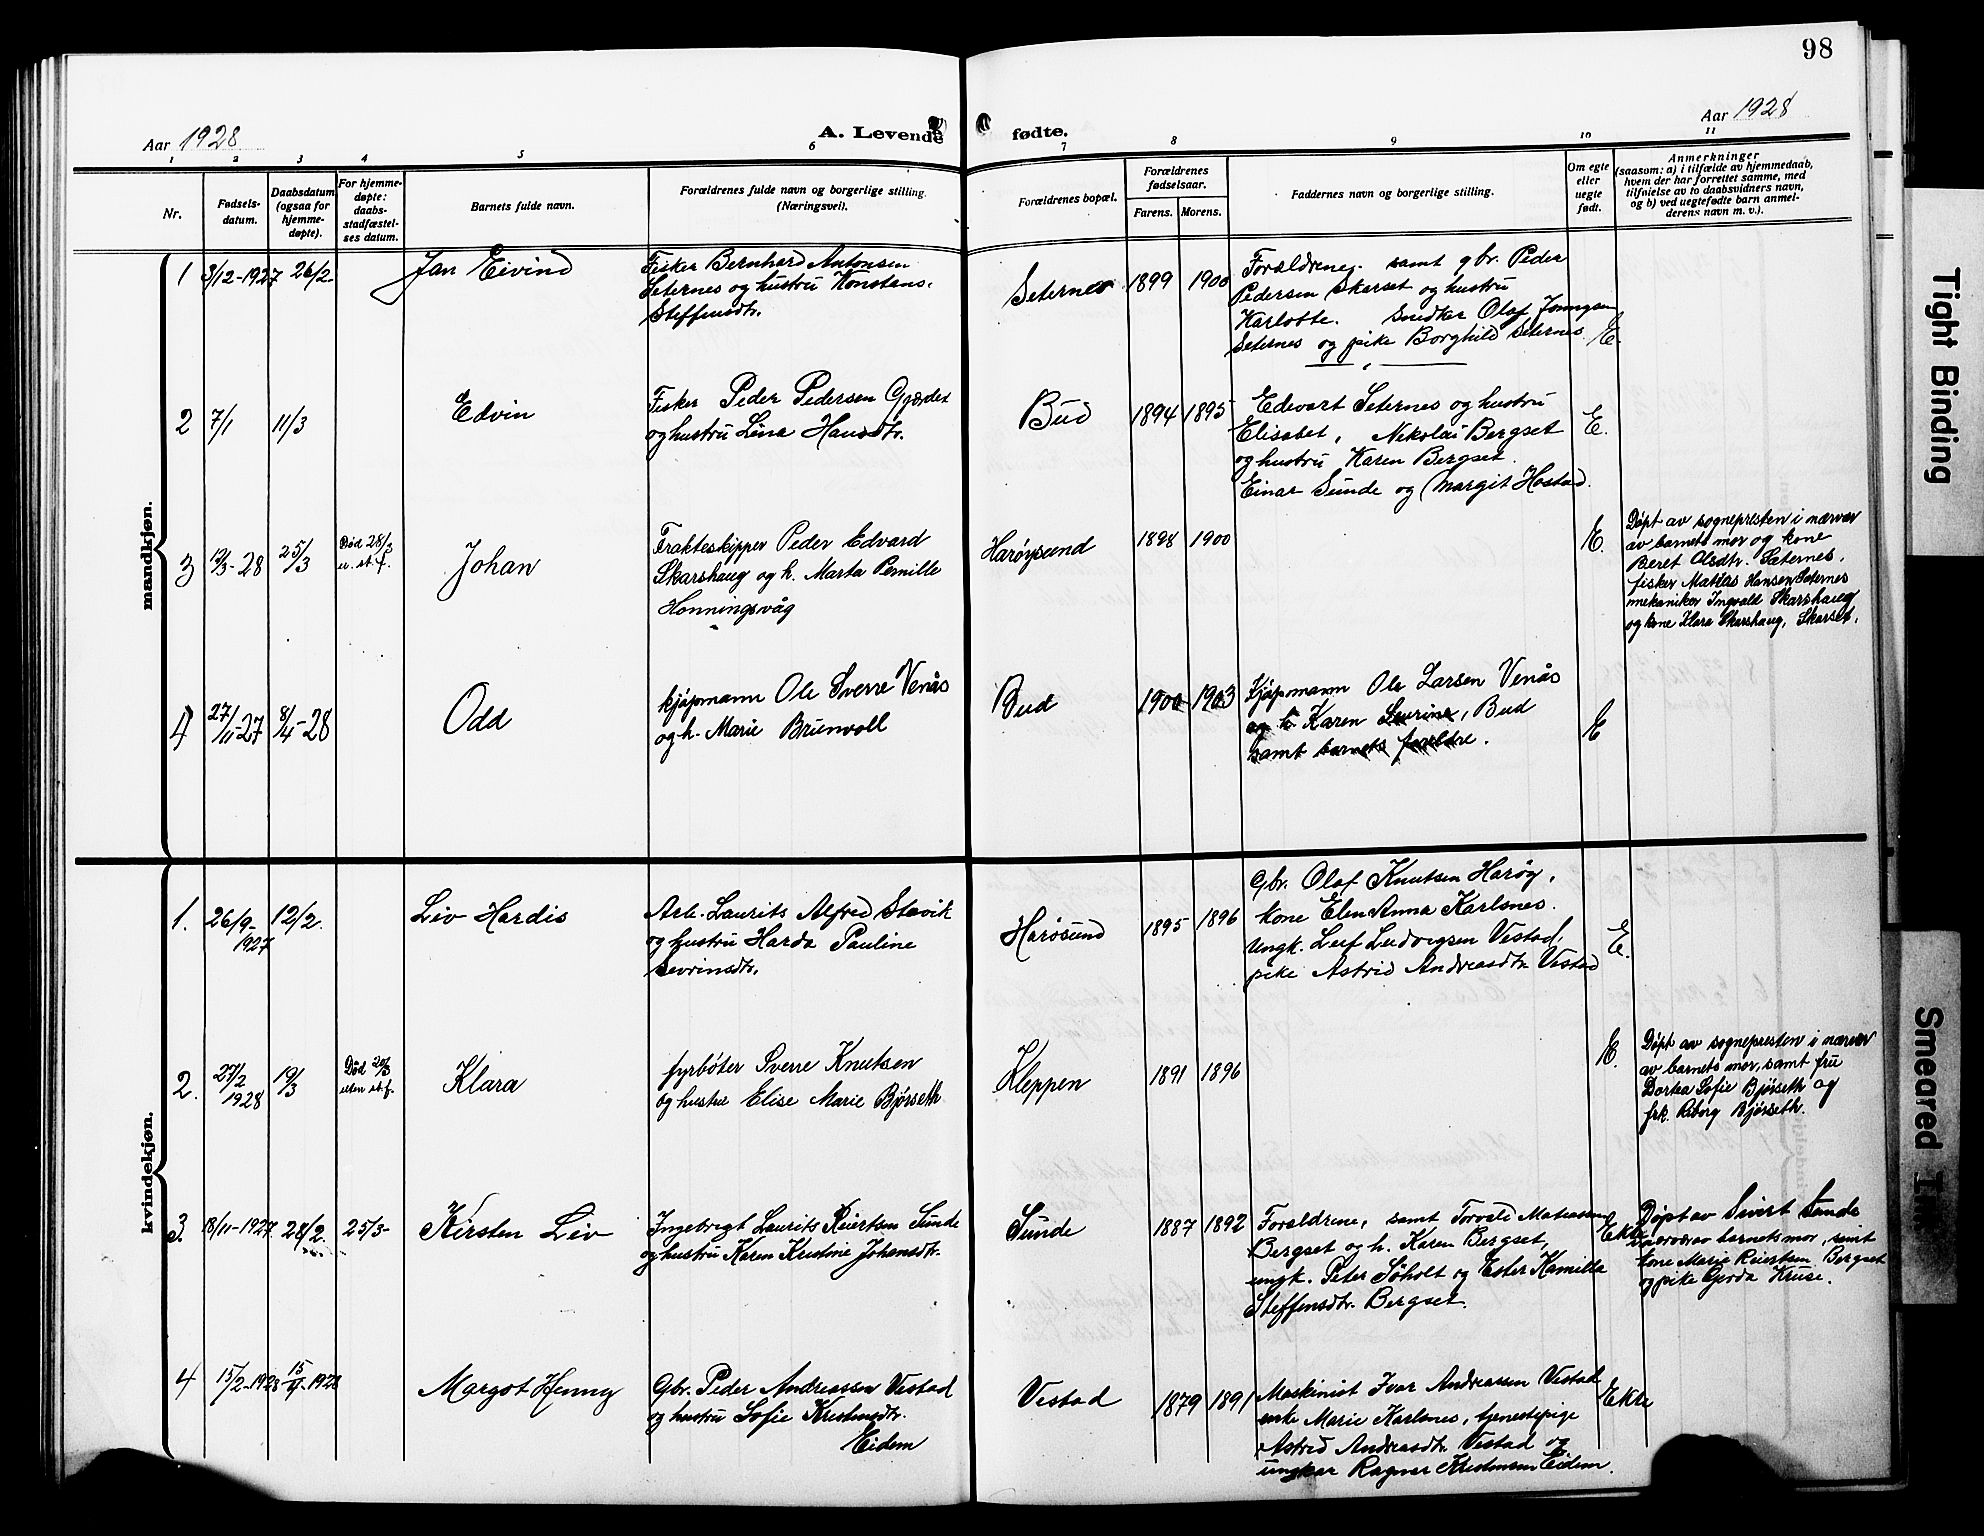 98
Aar 1928
A. Levende fødte.
Aar 1928
1 2 3 4 5 6 7 8 9 10 11
Nr.
Fødsels-
datum.
Daabsdatum
(ogsaa for
hjemme-
døpte).
For hjemme-
døpte:
daabs-
stadfæstel-
ses datum.
Barnets fulde navn.
Forældrenes fulde navn og borgerlige stilling.
(Næringsvei).
Forældrenes bopæl.
Forældrenes
fødselsaar.
Farens. Morens.
Faddernes navn og borgerlige stilling.
Om egte
eller
uegte
født.
Anmerkninger
(saasom: a) i tilfælde av hjemmedaab,
hvem der har forrettet samme, med
tilføielse av to daabsvidners navn,
og b) ved uegtefødte barn anmel-
derens navn m. v.).
mandkjøn.
1 3/12-1927 26/2- Jan Eivind
Fisker Bernhard Antonsen
Seternes og hustru Konstans.
Steffensdtr.
Seternes 1899 1900
Forældrene. samt gbr. Peder
Pedersen Skarset og hustru
Karlotte. Snedker Olaf
Seternes og pike Borghild Seternes
E.
2 7/1 11/3 Edvin
Fisker Peder Pedersen Gjærdet
og hustru Lina Hansdtr.
Bud 1894 1895
Edevart Seternes og hustru
Elisabet, Nikolai Bergset
og hustru Karen Bergset.
Einar Sunde og Margit Hostad.
E.
3 12/3-28 25/3
Død 28/3
u. st. f.
Johan
Frakteskipper Peder Edvard
Skarshaug og h. Marta Pernille
Honningsvåg
Harøysund 1898 1900
E.
Døpt av sognepresten i nærvær
av barnets mor og kone
Beret Olsdtr. Sæternes,
fisker Matias Hansen Seternes
mekaniker Ingvald Skarshaug
og kone Klara Skarshaug, Skarset.
4 27/11-27 8/4-28 Odd
kjøpmann Ole Sverre Venås
og h. Marie Brunvoll
Bud 1900 1903
Kjøpmann Ole Larsen Venås
og h. Karen Laurine, Bud
samt barnets foreldre.
E
kvindekjøn.
1. 26/9-1927 12/2. Liv Hardis
Arb. Laurits Alfred Stavik
og hustru Harda Pauline
Sevrinsdtr.
Harøsund 1895 1896
Gbr. Olaf Knutsen Harøy,
kone Elen Anna Karlsnes.
Ungk. Leif Ludvigsen Vestad,
pike Astrid Andreasdtr. Vestad
E.
2. 27/2 1928 19/3
Død 20/3
uten st.f.
Klara
fyrbøter Sverre Knutsen
og hustru Elise Marie Bjørseth
Kleppen 1891 1896
E.
Døpt av sognepresten i nærvær
av barnets mor, samt fru
Dortea Sofie Bjørseth og
frk. Borg Bjørseth.
3. 18/11-1927. 28/2. 25/3- Kirsten Liv
Ingebrigt Laurits Reiertsen Sunde
og hustru Karen Kristine Johansdtr.
Sunde 1887 1892
Forældrene, samt Torvald Matiassen
Bergset og h. Karen Bergset,
ungk. Peter Søholt og Ester Kamilla
Steffensdtr. Bergset.
Ekte
Døpt av Sivert Sunde
i nærvær av barnets mor, samt
kone Marie Reiertsen Bergset
og pike Gerda Kruse.
4 15/2-1928 15/4-1928 Margot Henny
Gbr. Peder Andreassen Vestad
og hustru Sofie Kristinedtr.
Eidem
Vestad 1879 1891
Maskinist Ivar Andreassen Vestad
enke Marie Karlsnes, tjenestepige
Astrid Andreasdtr. Vestad og
ungkar Ragnar Kristensen Eidem.
Ekte
Tight Binding
Smeared Ink